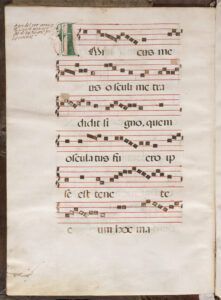 AMI cus me
us osculi me tra
didit si gno, quem
osculatus fu ero ip
se est tene te
e um hoc ma